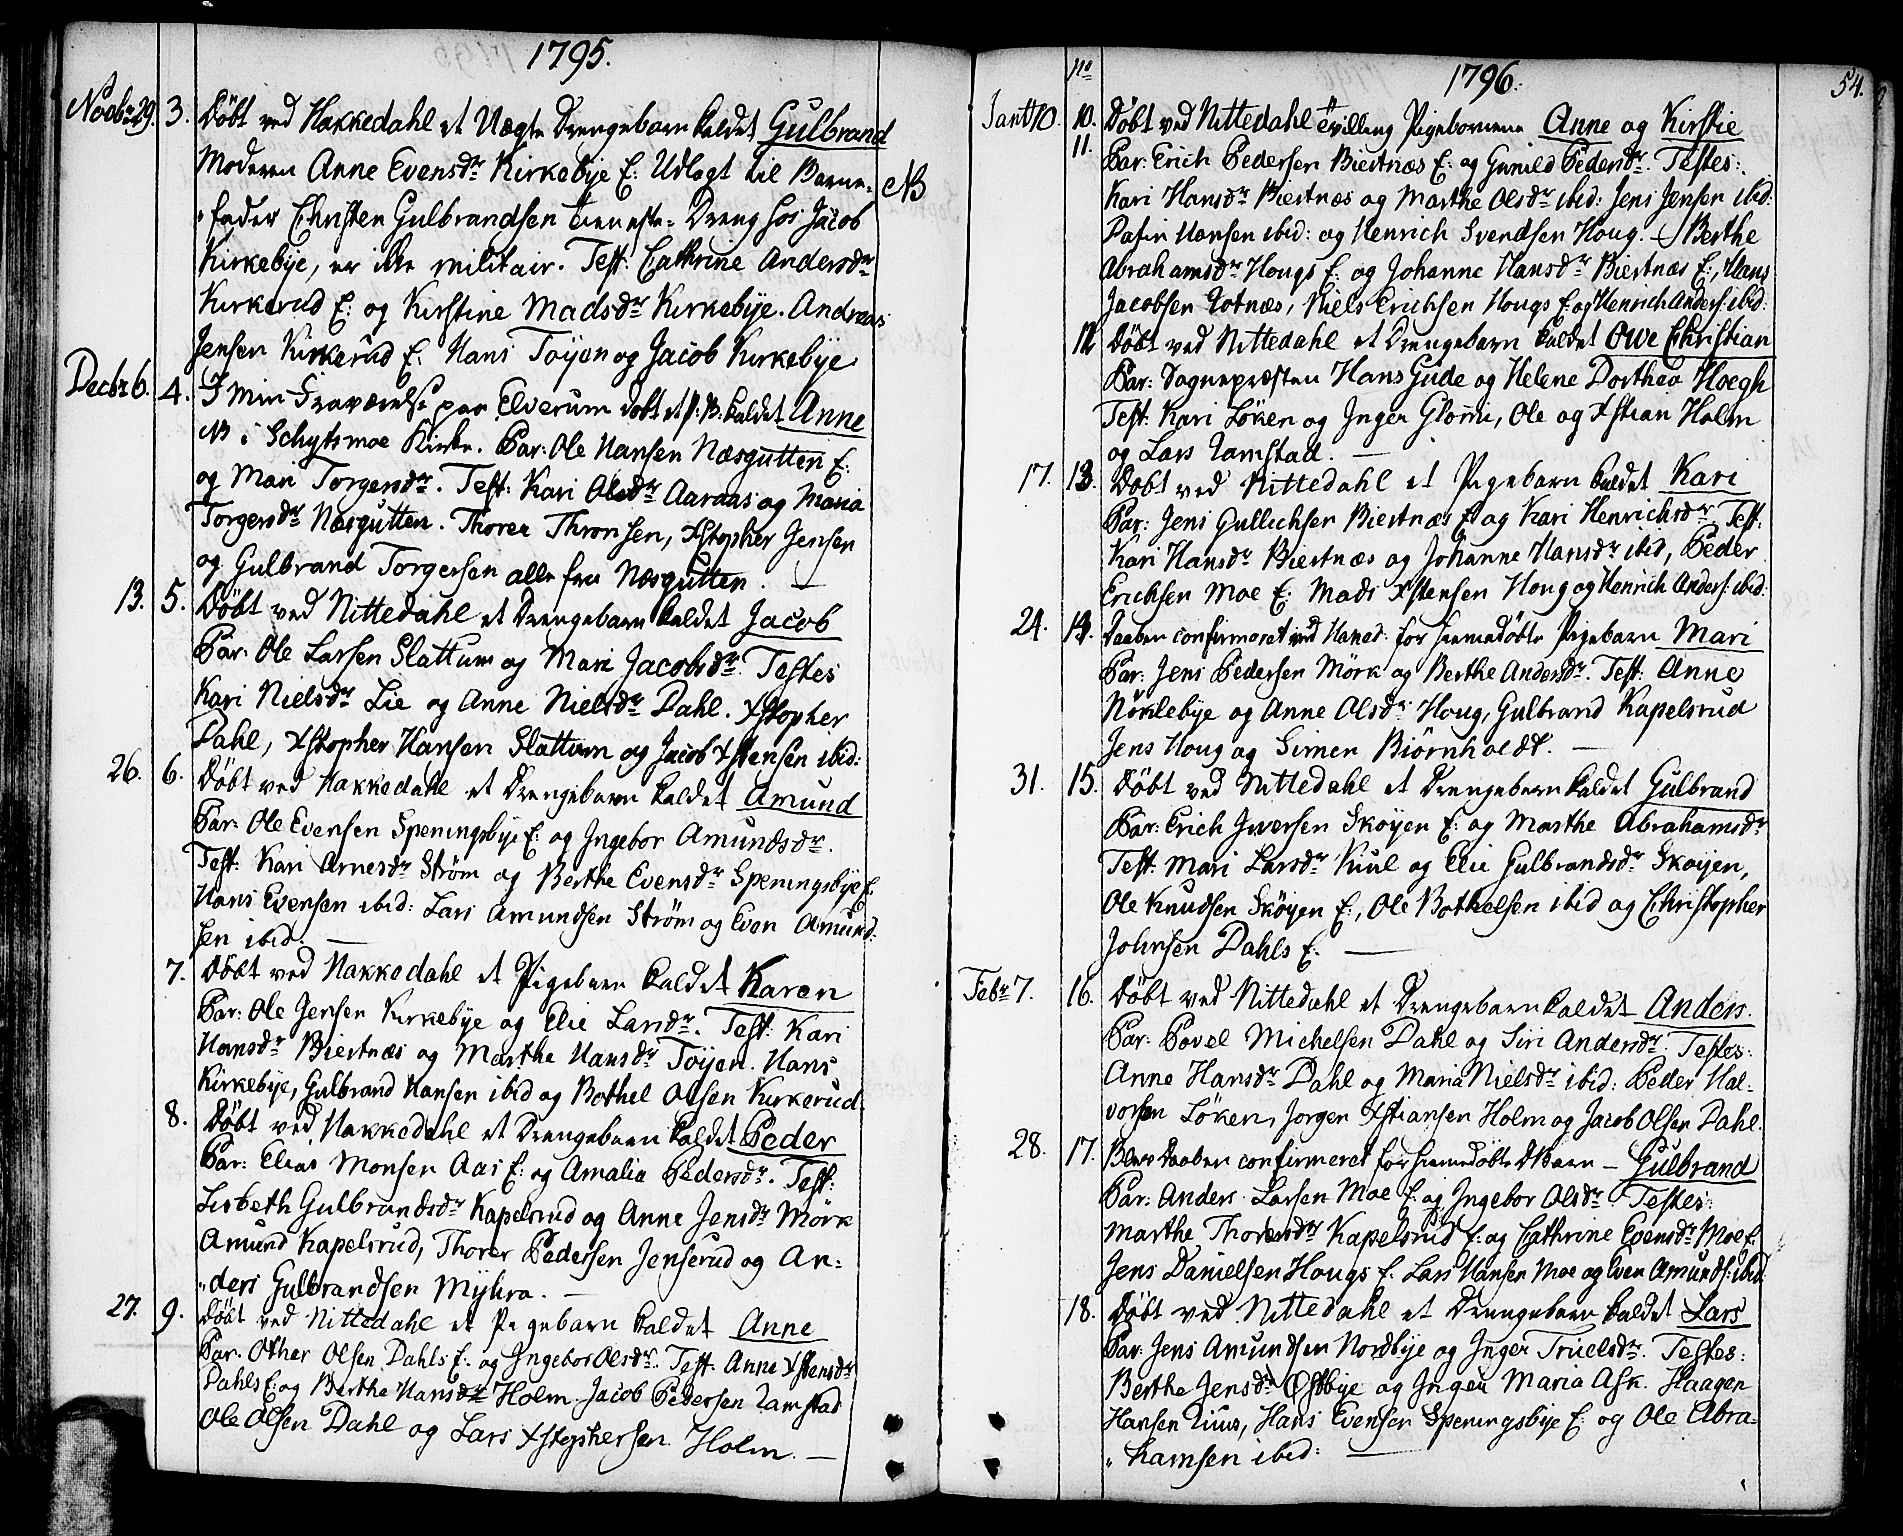 1795.
Novbr 29. 3. Döbt ved Hakkedahl et Uægte Drengebarn kaldet Gulbrand
Moderen Anne Evensdr Kirkebÿe E: Udlagt til Barne- NB
fader Christen Gulbrandsen tieneste-Dreng hos Jacob
Kirkebÿe, er ikke militair. Test: Cathrine Andersdr
Kirkerud E: og Kirstine Madsdr Kirkebÿe. Andreas
Jensen Kirkerud E. Hans Toÿen og Jacob Kirkebÿe
Decbr 6. 4. I min Fraværelse paa Elverum döbt et P. B. kaldet Anne
NB i Schytsmoe Kirke. Par: Ole Hansen Næsgutten E:
og Mari Torgersdr. Test: Kari Olsdr Aaraas og Maria
Torgersdr Næsgutten. Thorer Thronsen, Xstopher Jensen
og Gulbrand Torgersen alle fra Næsgutten.
13. 5. Döbt ved Nittedahl et Drengebarn kaldet Jacob
Par: Ole Larsen Slattum og Mari Jacobsdr. Testes
Kari Nielsdr Lie og Anne Nielsdr Dahl. Xstopher
Dahl, Xstopher Hansen Slattum og Jacob Xstensen ibid:
26. 6. Döbt ved Hakkedahl et Drengebarn kaldet Amund
Par: Ole Evensen Speningsbÿe E: og Ingebor Amundsdr.
Test: Kari Arnesdr Strøm og Berthe Evensdr Speningsbÿe E.
Hans Evensen ibid: Lars Amundsen Strøm og Even Amund:
sen ibid.
7. Döbt ved Hakkedahl et Pigebarn kaldet Karen
Par: Ole Jensen Kirkebÿe og Elie Larsdr. Test: Kari
Hansdr Biertnæs og Marthe Hansdr Toÿen. Hans
Kirkebÿe, Gulbrand Hansen ibid og Bothel Olsen Kirkerud.
8. Döbt ved Hakkedahl et Drengebarn kaldet Peder
Par: Elias Monsen Aas E: og Amalia Pedersdr. Test:
Lisbeth Gulbrandsdr Kapelsrud og Anne Jensdr Mörk
Amund Kapelsrud, Thorer Pedersen Jenserud og An:
ders Gulbrandsen Mÿhra.
27. 9. Döbt ved Nittedahl et Pigebarn kaldet Anne
Par: Other Olsen Dahls E: og Ingebor Olsdr. Test: Anne Xstensdr
Dahls E: og Berthe Hansdr Holm. Jacob Pedersen Ramstad
Ole Olsen Dahl og Lars Xstophersen Holm.
No 1796. 54.
Janr 10. 10. Döbt ved Nittedahl tvilling Pigebornene Anne og Kirstie
11. Par: Erich Pedersen Biertnæs E: og Gunild Pedersdr. Testes:
Kari Hansdr Biertnæs og Marthe Olsdr ibid: Jens Jensen ibid:
Hansen ibid: og Henrich Svendsen Houg. Berthe
Abrahamsdr Hougs E: og Johanne Hansdr Biertnæs E:, Hans
Jacobsen Rotnæs, Niels Erichsen Hougs E og Henrich Anders: ibid:
12 Döbt ved Nittedahl et Drengebarn kaldet Owe Christian
Par: Sognepræsten Hans Gude og Helene Dorthea Hoegh
Test: Kari Löken og Inger Glomi, Ole og Xstian Holm
og Lars Ramstad.
17. 13. Döbt ved Nittedahl et Pigebarn kaldet Kari
Par: Jens Gullichsen Biertnæs E: og Kari Henrichsdr Test:
Kari Hansdr Biertnæs og Johanne Hansdr ibid, Peder
Erichsen Moe E: Mads Xstensen Houg og Henrich Anders: ibid:
24. 14. Daaben confirmeret ved Hakad: for hiemedöbte Pigebarn Mari
Par: Jens Pedersen Mörk og Berthe Andersdr. Test: Anne
Nörlebÿe og Anne Olsdr Houg, Gulbrand Kapelsrud
Jens Houg og Simen Biörnholdt.
31. 15. Döbt ved Nittedahl et Drengebarn kaldet Gulbrand
Par: Erich Iversen Sköyen E: og Marthe Abrahamsdr
Test: Mari Larsdr Kiul og Elie Gulbrandsdr Skoÿen,
Ole Knudsen Sköyen E:, Ole Bothelsen ibid og Christopher
Johnsen Dahls E.
Febr 7. 16. Döbt ved Nittedahl et Drengebarn kaldet Anders.
Par: Povel Michelsen Dahl og Siri Andersdr. Testes:
Anne Hansdr Dahl og Maria Nielsdr ibid: Peder Hal-
vorsen Löken, Jorgen Xstiansen Holm og Jacob Olsen Dahl.
28. 17. Blev Daaben confirmeret for hiemedöbte D Barn - Gulbrand
Par: Anders Larsen Moe E. og Ingebor Olsdr. Testes:
Marthe Thorersdr Kapelsrud E: og Cathrine Evensdr Moe E.
Jens Danielsen Hougs E. Lars Hansen Moe og Even Amunds: ibid
18. Döbt ved Nittedahl et Drengebarn kaldet Lars
Par: Jens Amundsen Nordbÿe og Inger Truelsdr. Testes:
Berthe Jensdr Østbÿe og Ingeri Maria Ask. Haagen
Hansen Ruus, Hans Evensen Speningsbÿe E: og Ole Abra-
hamsen ibid: